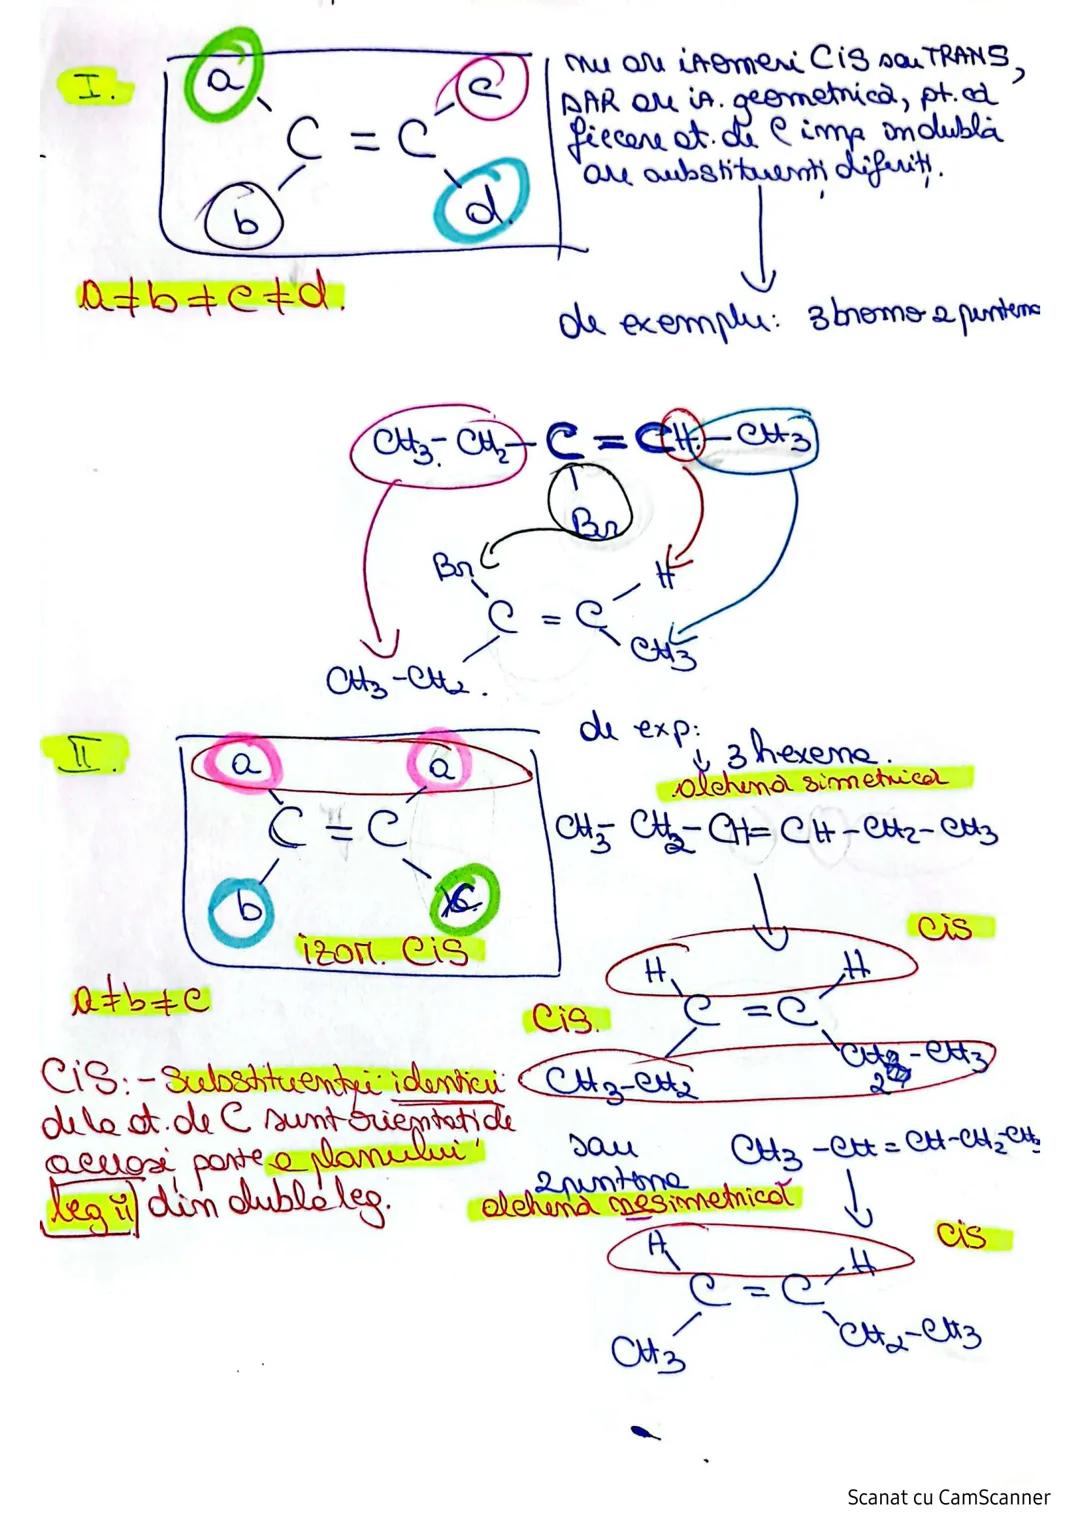 I.
a
e
C = C
b
d
nu are izomeri Cis sau TRANS,
DAR are iz. geometrică, pt. că
fiecare at. de C imp în dublă
are substituenți diferiți.
a ≠ b ≠ c ≠ d.
de exemplu: 3 bromo 2 pentena
CH3 - CH2 - C = CH - CH3
Br
Br
H
C = C
CH3
CH3 - CH2.
II.
de exp:
3 hexena.
alchenă simetrică
a
a
C = C
CH3 - CH2 - CH = CH - CH2 - CH3
b
c
izom. Cis
cis
H
H
a ≠ b ≠ c
Cis.
C = C
CH2 - CH3
CH3 - CH2
Cis: - Substituenții identici
de la at. de C sunt orientați de
aceeași parte a planului
leg ii din dubla leg.
sau
CH3 - CH = CH - CH2 - CH3
2 pentena
alchenă nesimetrică
cis
H
H
C = C
CH3
CH2 - CH3
Scanat cu CamScanner